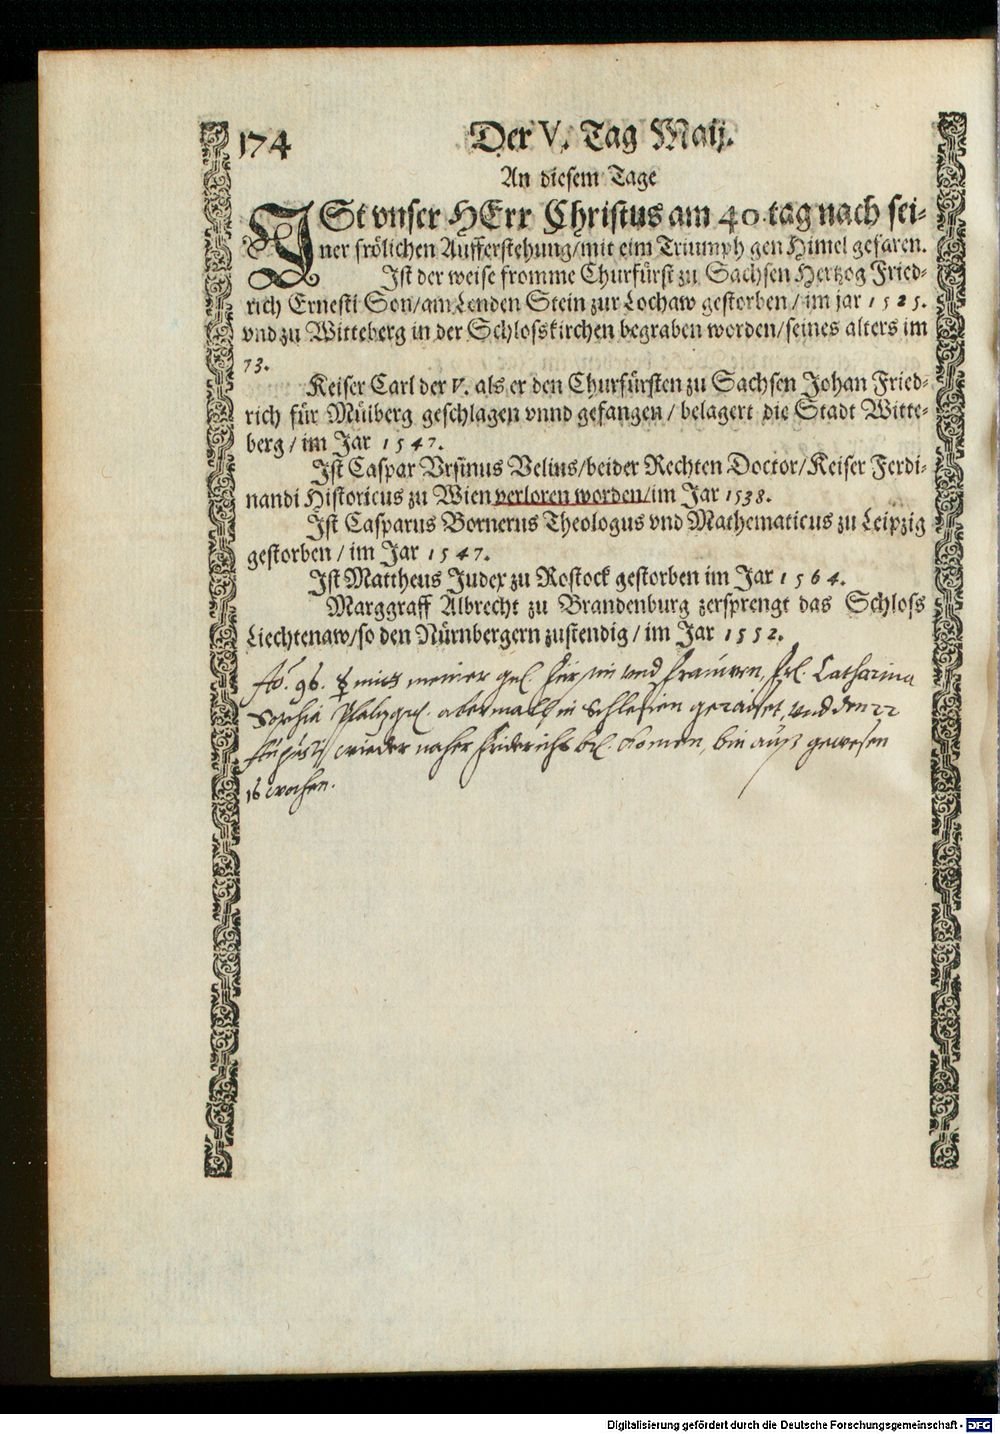 174 Der V. Tag Maij.
An diesem Tage
ISt vnser HErr Christus am 40. tag nach sei-
ner frölichen Aufferstehung/mit eim Triumph gen Himel gefaren.
Ist der weise fromme Churfürst zu Sachsen Hertzog Fried-
rich Ernesti Son/am Lenden Stein zur Lochaw gestorben/im jar 1525.
vnd zu Witteberg in der Schlosskirchen begraben worden/seines alters im
73.
Keiser Carl der V. als er den Churfürsten zu Sachsen Johan Fried-
rich für Mülberg geschlagen vnnd gefangen/belagert die Stadt Witte-
berg/im Jar 1547.
Ist Caspar Vrsinus Velius/beider Rechten Doctor/Keiser Ferdi-
nandi Historicus zu Wien verloren worden/im Jar 1538.
Ist Casparus Bornerus Theologus vnd Mathematicus zu Leipzig
gestorben/im Jar 1547.
Ist Mattheus Judex zu Rostock gestorben im Jar 1564.
Marggraff Albrecht zu Brandenburg zersprengt das Schloss
Liechtenaw/so den Nürnbergern zustendig/im Jar 1552.
Ao. 96. mitt meiner und Frauwen, Catharina
Sophia abermalß in Schlesien geraiset, und den 22
Augusti wieder naher komen, bin auß gewesen
16 wochen.